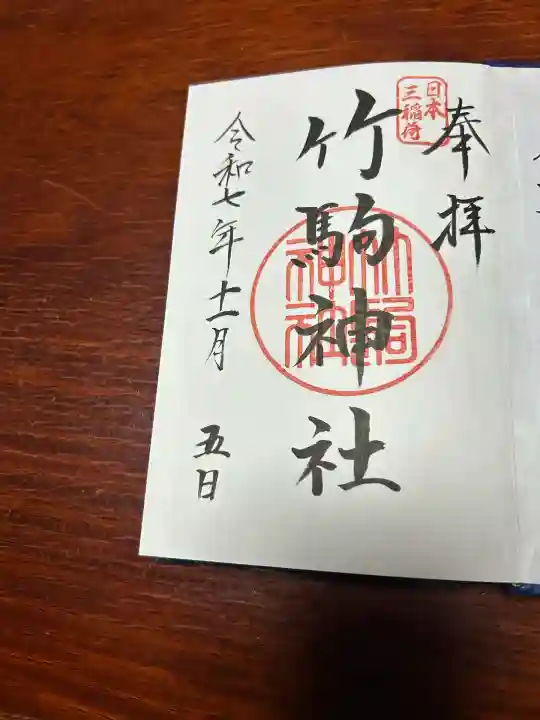 奉拝
日本
三稲荷
竹駒神社
竹駒
神社
令和七年十一月 五日